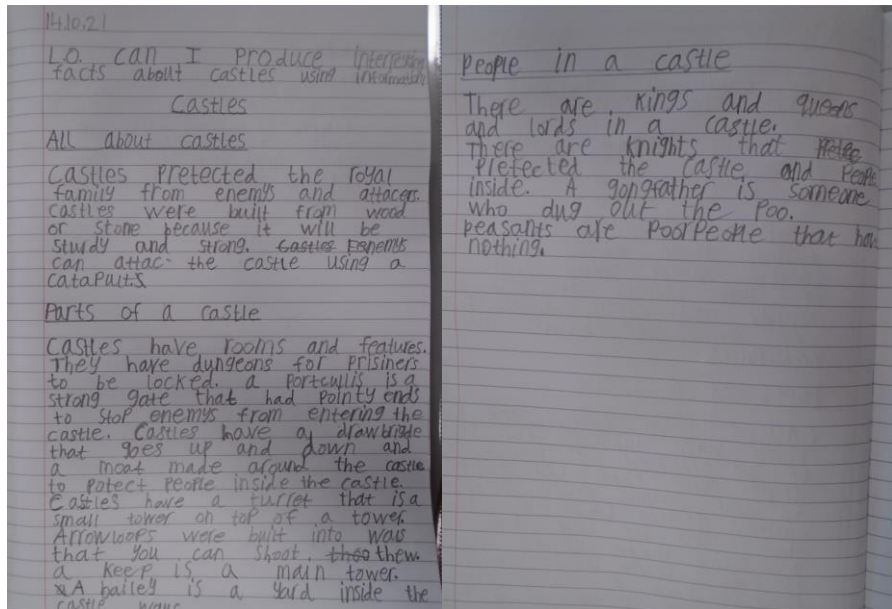 14.10.21
L.O. can I produce interesting
facts about castles using information
Castles
All about castles
Castles pretected the royal
family from enemys and attacers.
castles were built from wood
or stone because it will be
study and strong. Castles Eenemys
can attac the castle using a
catapults.
Parts of a castle
Castles have rooms and features.
They have dungeons for prisiners
to be locked. a portcullis is a
strong gate that had pointy ends
to stop enemys from entering the
castle. Castles have a drawbrige
that goes up and down and
a moat made around the castle
to potect people inside the castle.
Castles have a turret that is a
small tower on top of a tower.
Arrowloops were built into wals
that you can shoot thew.
a keep is a main tower.
A bailey is a yard inside the
castle
People in a castle
There are kings and queens
and lords in a castle.
There are knights that
pretected the castle and people
inside. A gongfather is someone
who dug out the poo.
peasants are poor people that hav
nothing.